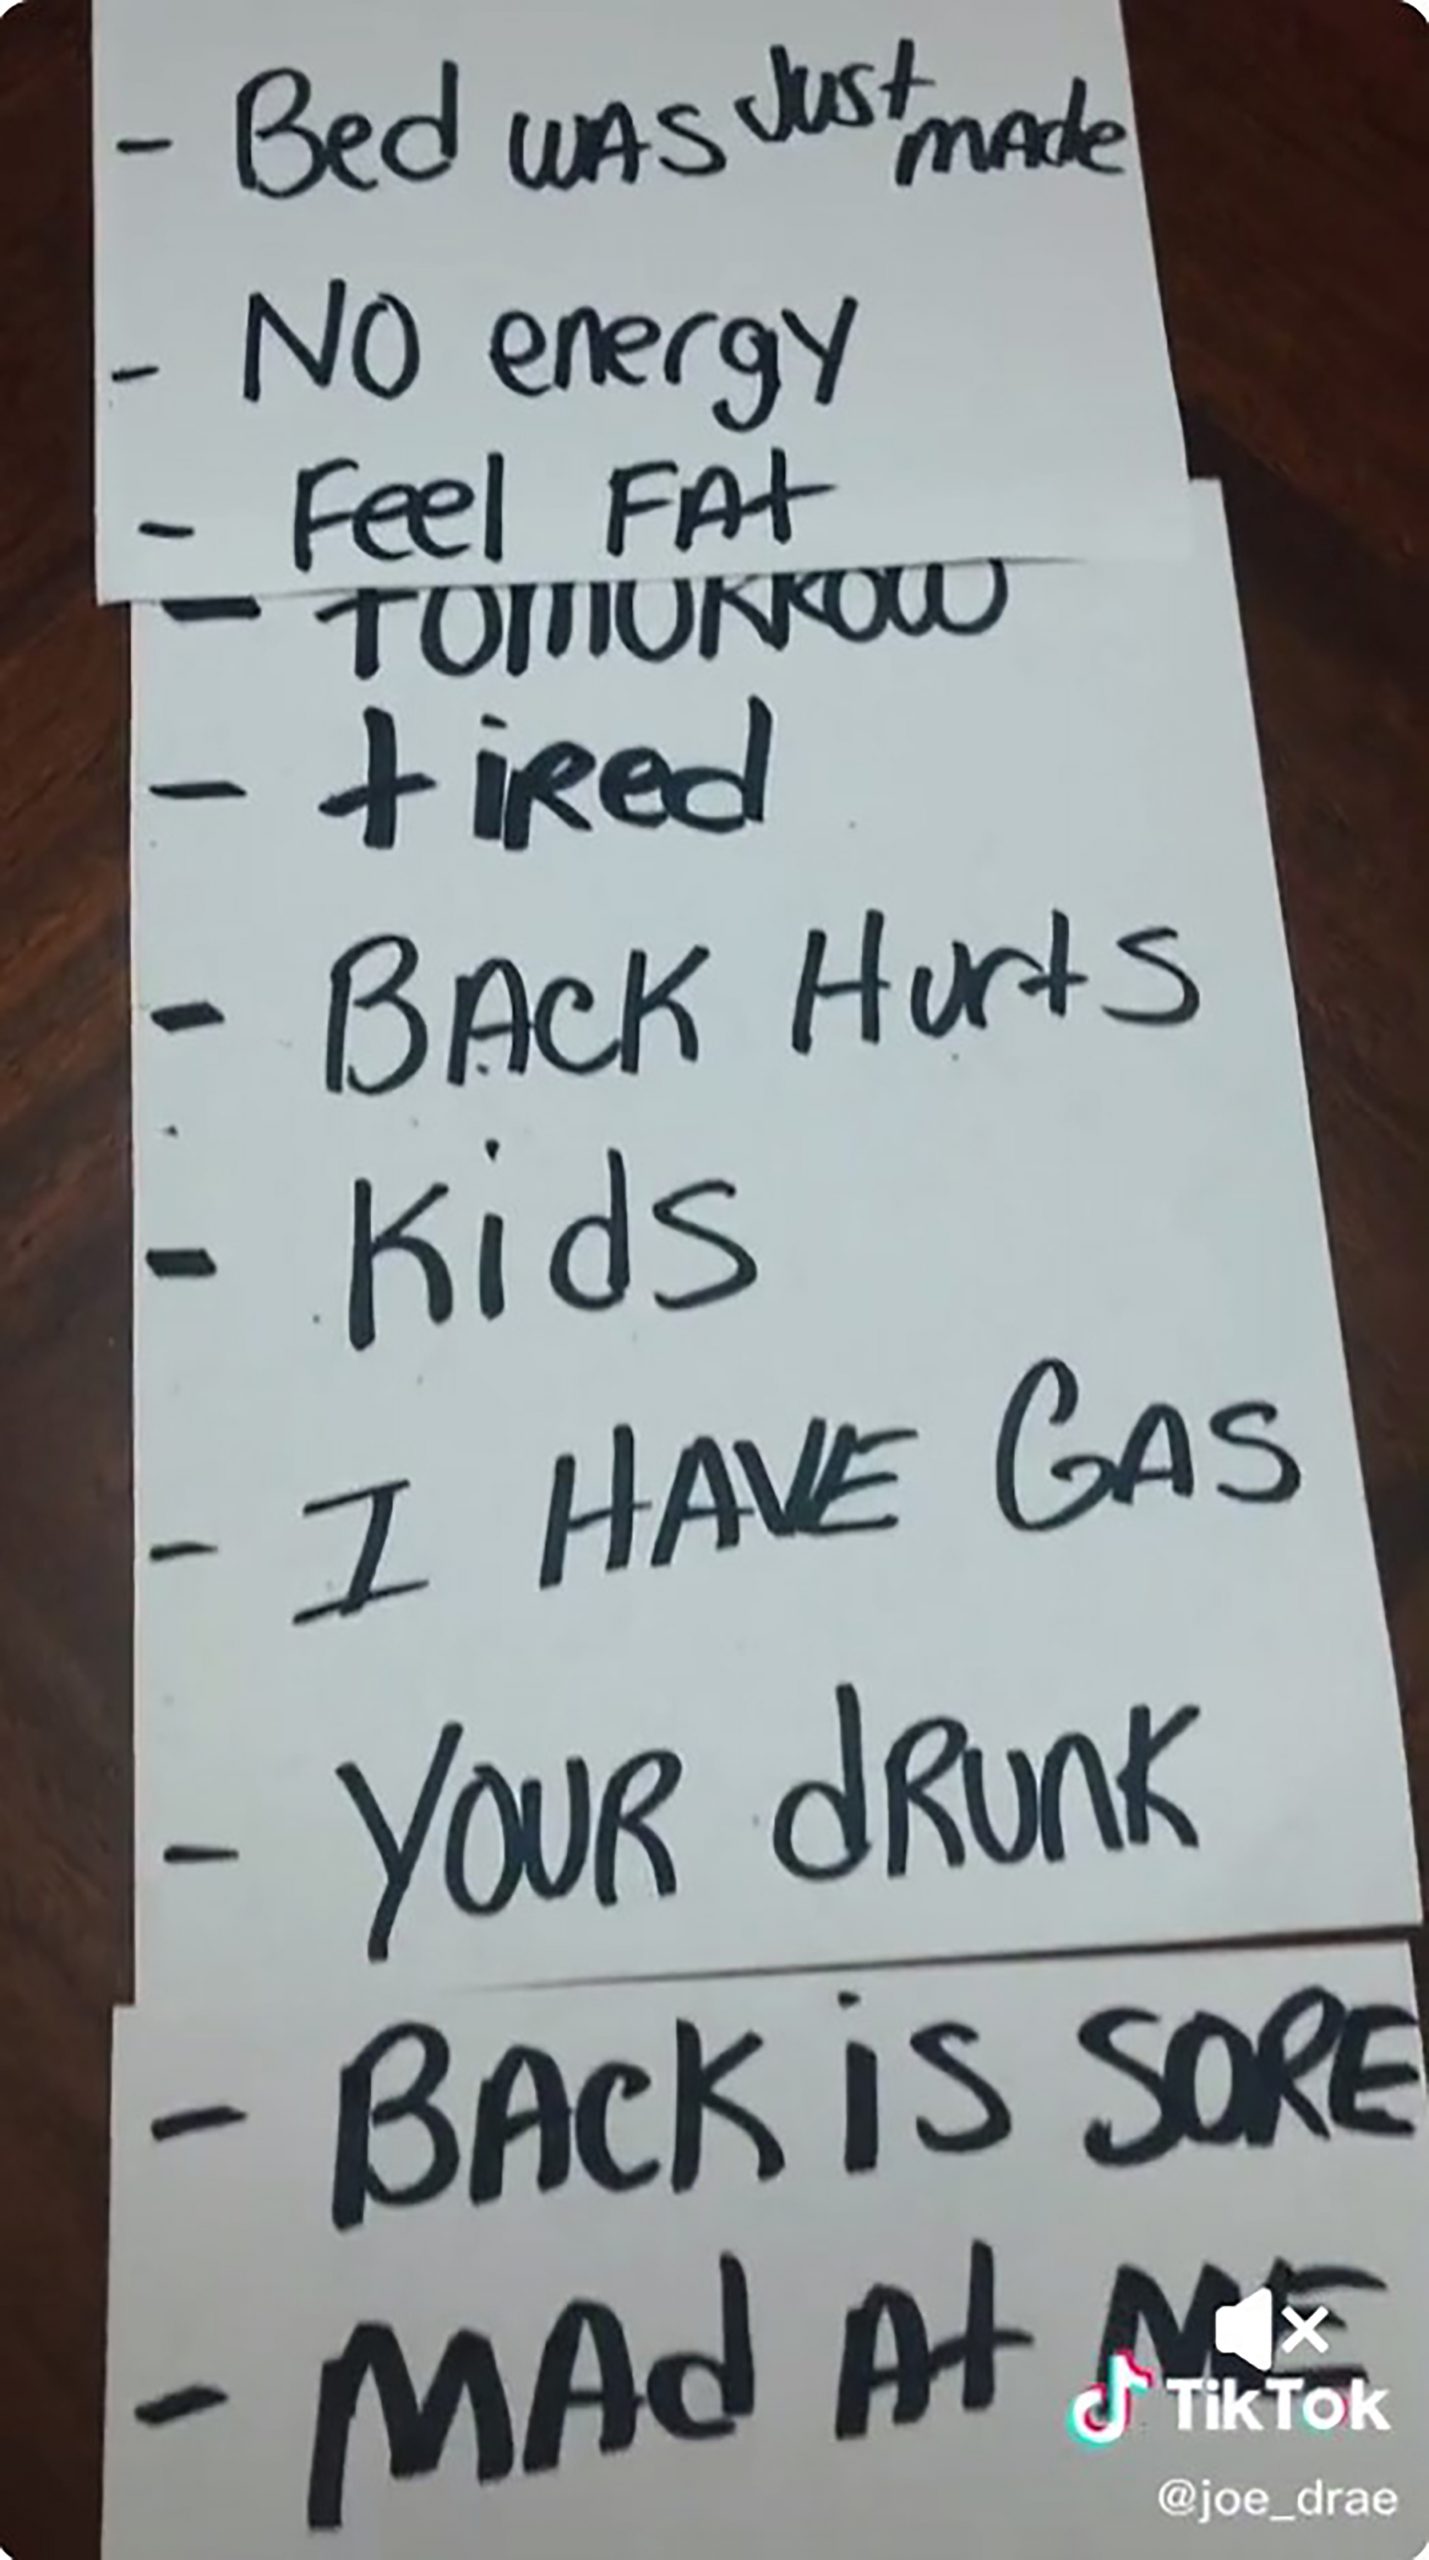 - Bed WAS Just made
- NO energy
- Feel FAt
- TOMORROW
- tiRed
- BACK HurtS
- KidS
- I HAVE GAS
- YOUR dRunK
- BACK iS SORE
- MAd At ME
TikTok
@joe_drae